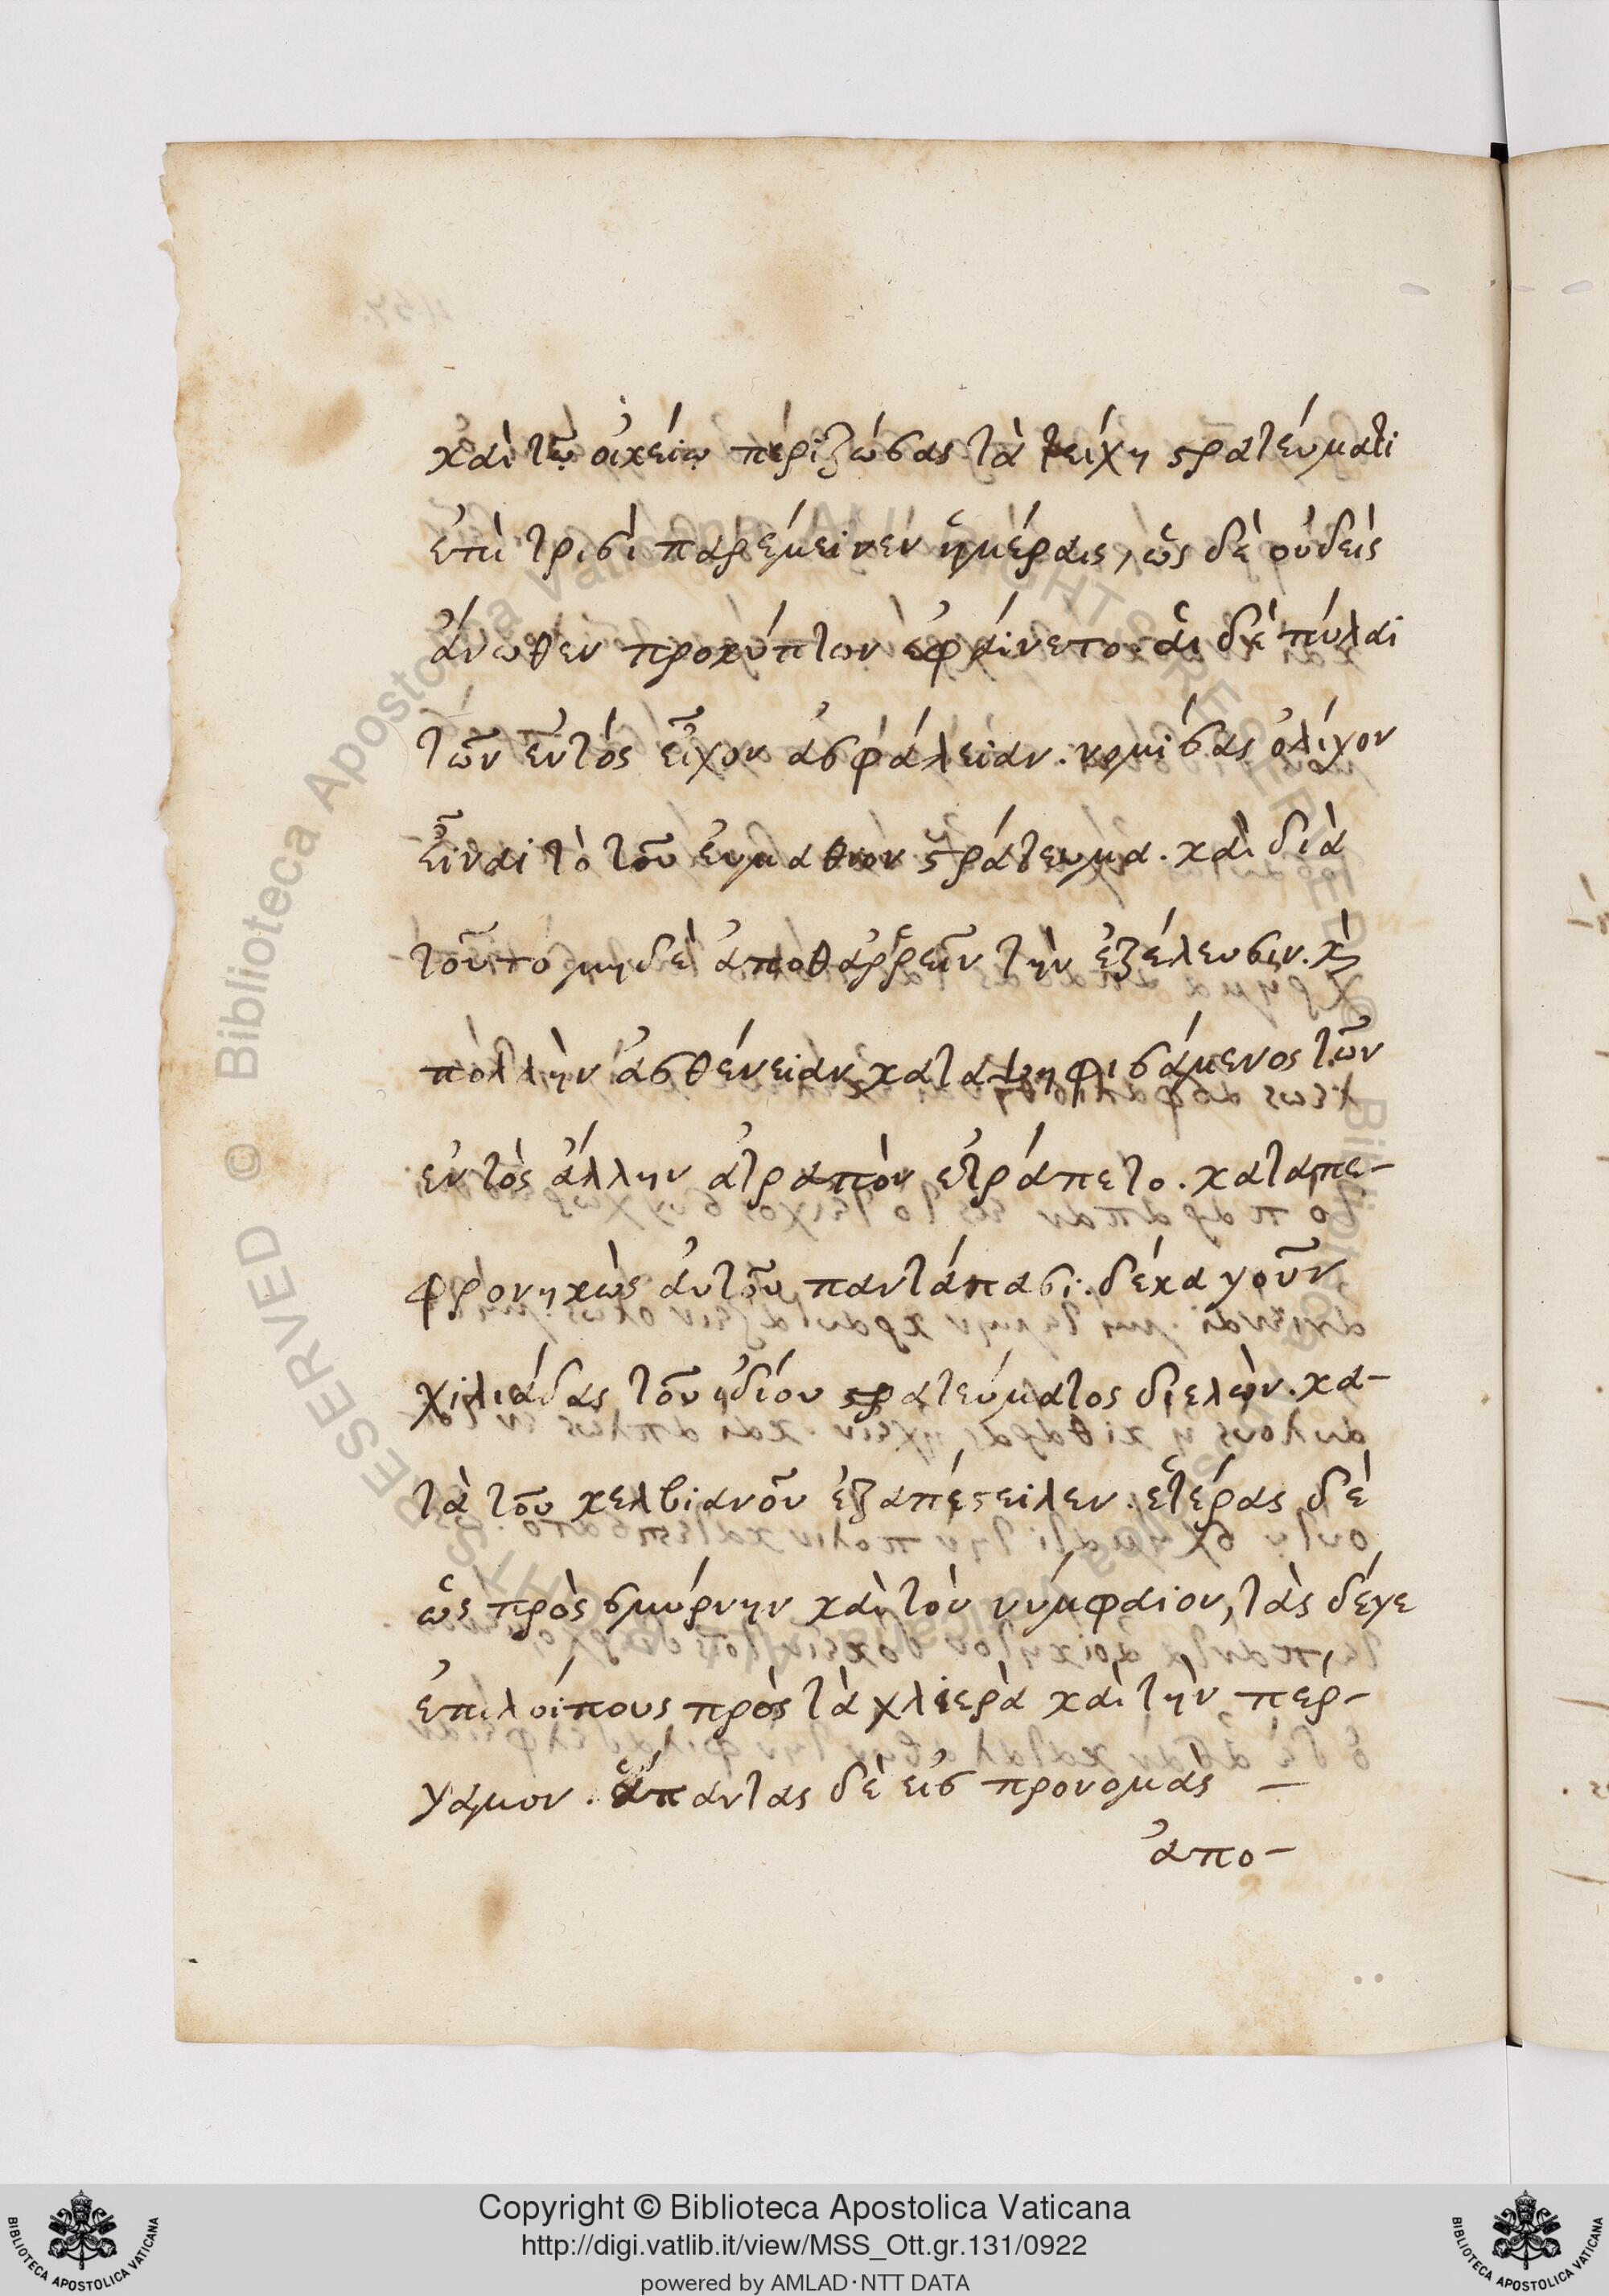 καὶ τῷ οἰκείῳ περιζώσας τὰ τείχη στρατεύματι
ἐπὶ τρισὶ παρέμεινεν ἡμέραις, ὡς δὲ οὐδεὶς
ἄνωθεν προκύπτων ἐφαίνετο. αἱ δὲ πύλαι
τῶν ἐντός εἶχον ἀσφάλειαν. νομίσας ὀλίγον
εἶναι τὸ τοῦ εὐμαθίου στράτευμα. καὶ διὰ
τοῦτο μηδὲ ἀποθαῤῥεῖν τὴν ἐξέλευσιν. κ
πολλὴν ἀσθένειαν καταψηφισάμενος τῶν
ἐντὸς ἄλλην ἀτραπὸν ἐτράπετο. καταπε-
φρονηκὼς αὐτοῦ παντάπασι. δέκα γοῦν
χιλιάδας τοῦ ἰδίου στρατεύματος διελὼν. κα-
τὰ τοῦ κελβιανοῦ ἐξαπέστειλεν. ἑτέρας δὲ
ὡς πρὸς σμύρνην καὶ τὸν νύμφαιον, τὰς δέγε
ἐπιλοίπους πρὸς τὰ χλιερὰ καὶ τὴν πέρ-
γαμον. ἅπαντας δὲ εἰς προνομὰς -
ἀπο-
Copyright © Biblioteca Apostolica Vaticana
http://digi.vatlib.it/view/MSS_Ott.gr.131/0922
powered by AMLAD·NTT DATA
BIBLIOTECA APOSTOLICA VATICANA
BIBLIOTECA APOSTOLICA VATICANA